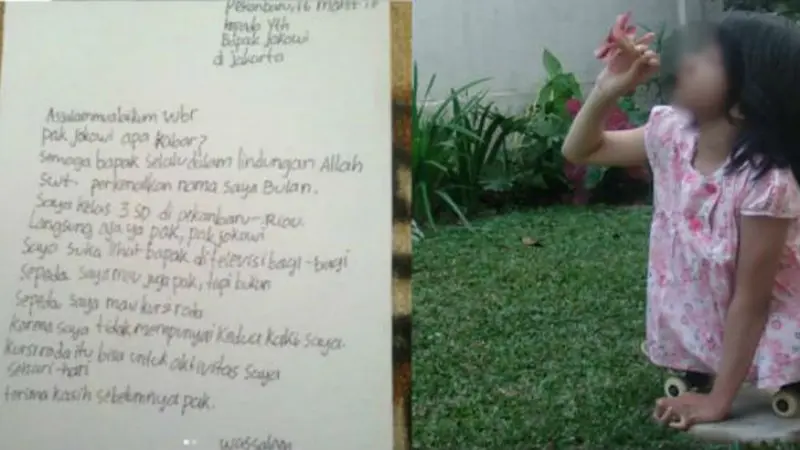 Pekanbaru, 16 Maret 17
Kepada Yth
Bapak Jokowi
di Jakarta
Assalammualaikum wbr
Pak Jokowi apa kabar?
Semoga bapak selalu dalam lindungan Allah
Swt. perkenalkan nama saya Bulan.
Saya kelas 3 SD di Pekanbaru - Riau.
Langsung aja ya pak, pak Jokowi
Saya suka lihat bapak di televisi bagi-bagi
Sepeda. Saya mau juga pak, tapi bukan
Sepeda. Saya mau kursi roda
karna saya tidak mempunyai kedua kaki saya.
Kursi roda itu bisa untuk aktivitas saya
sehari-hari
terima kasih sebelumnya pak.
wassalam